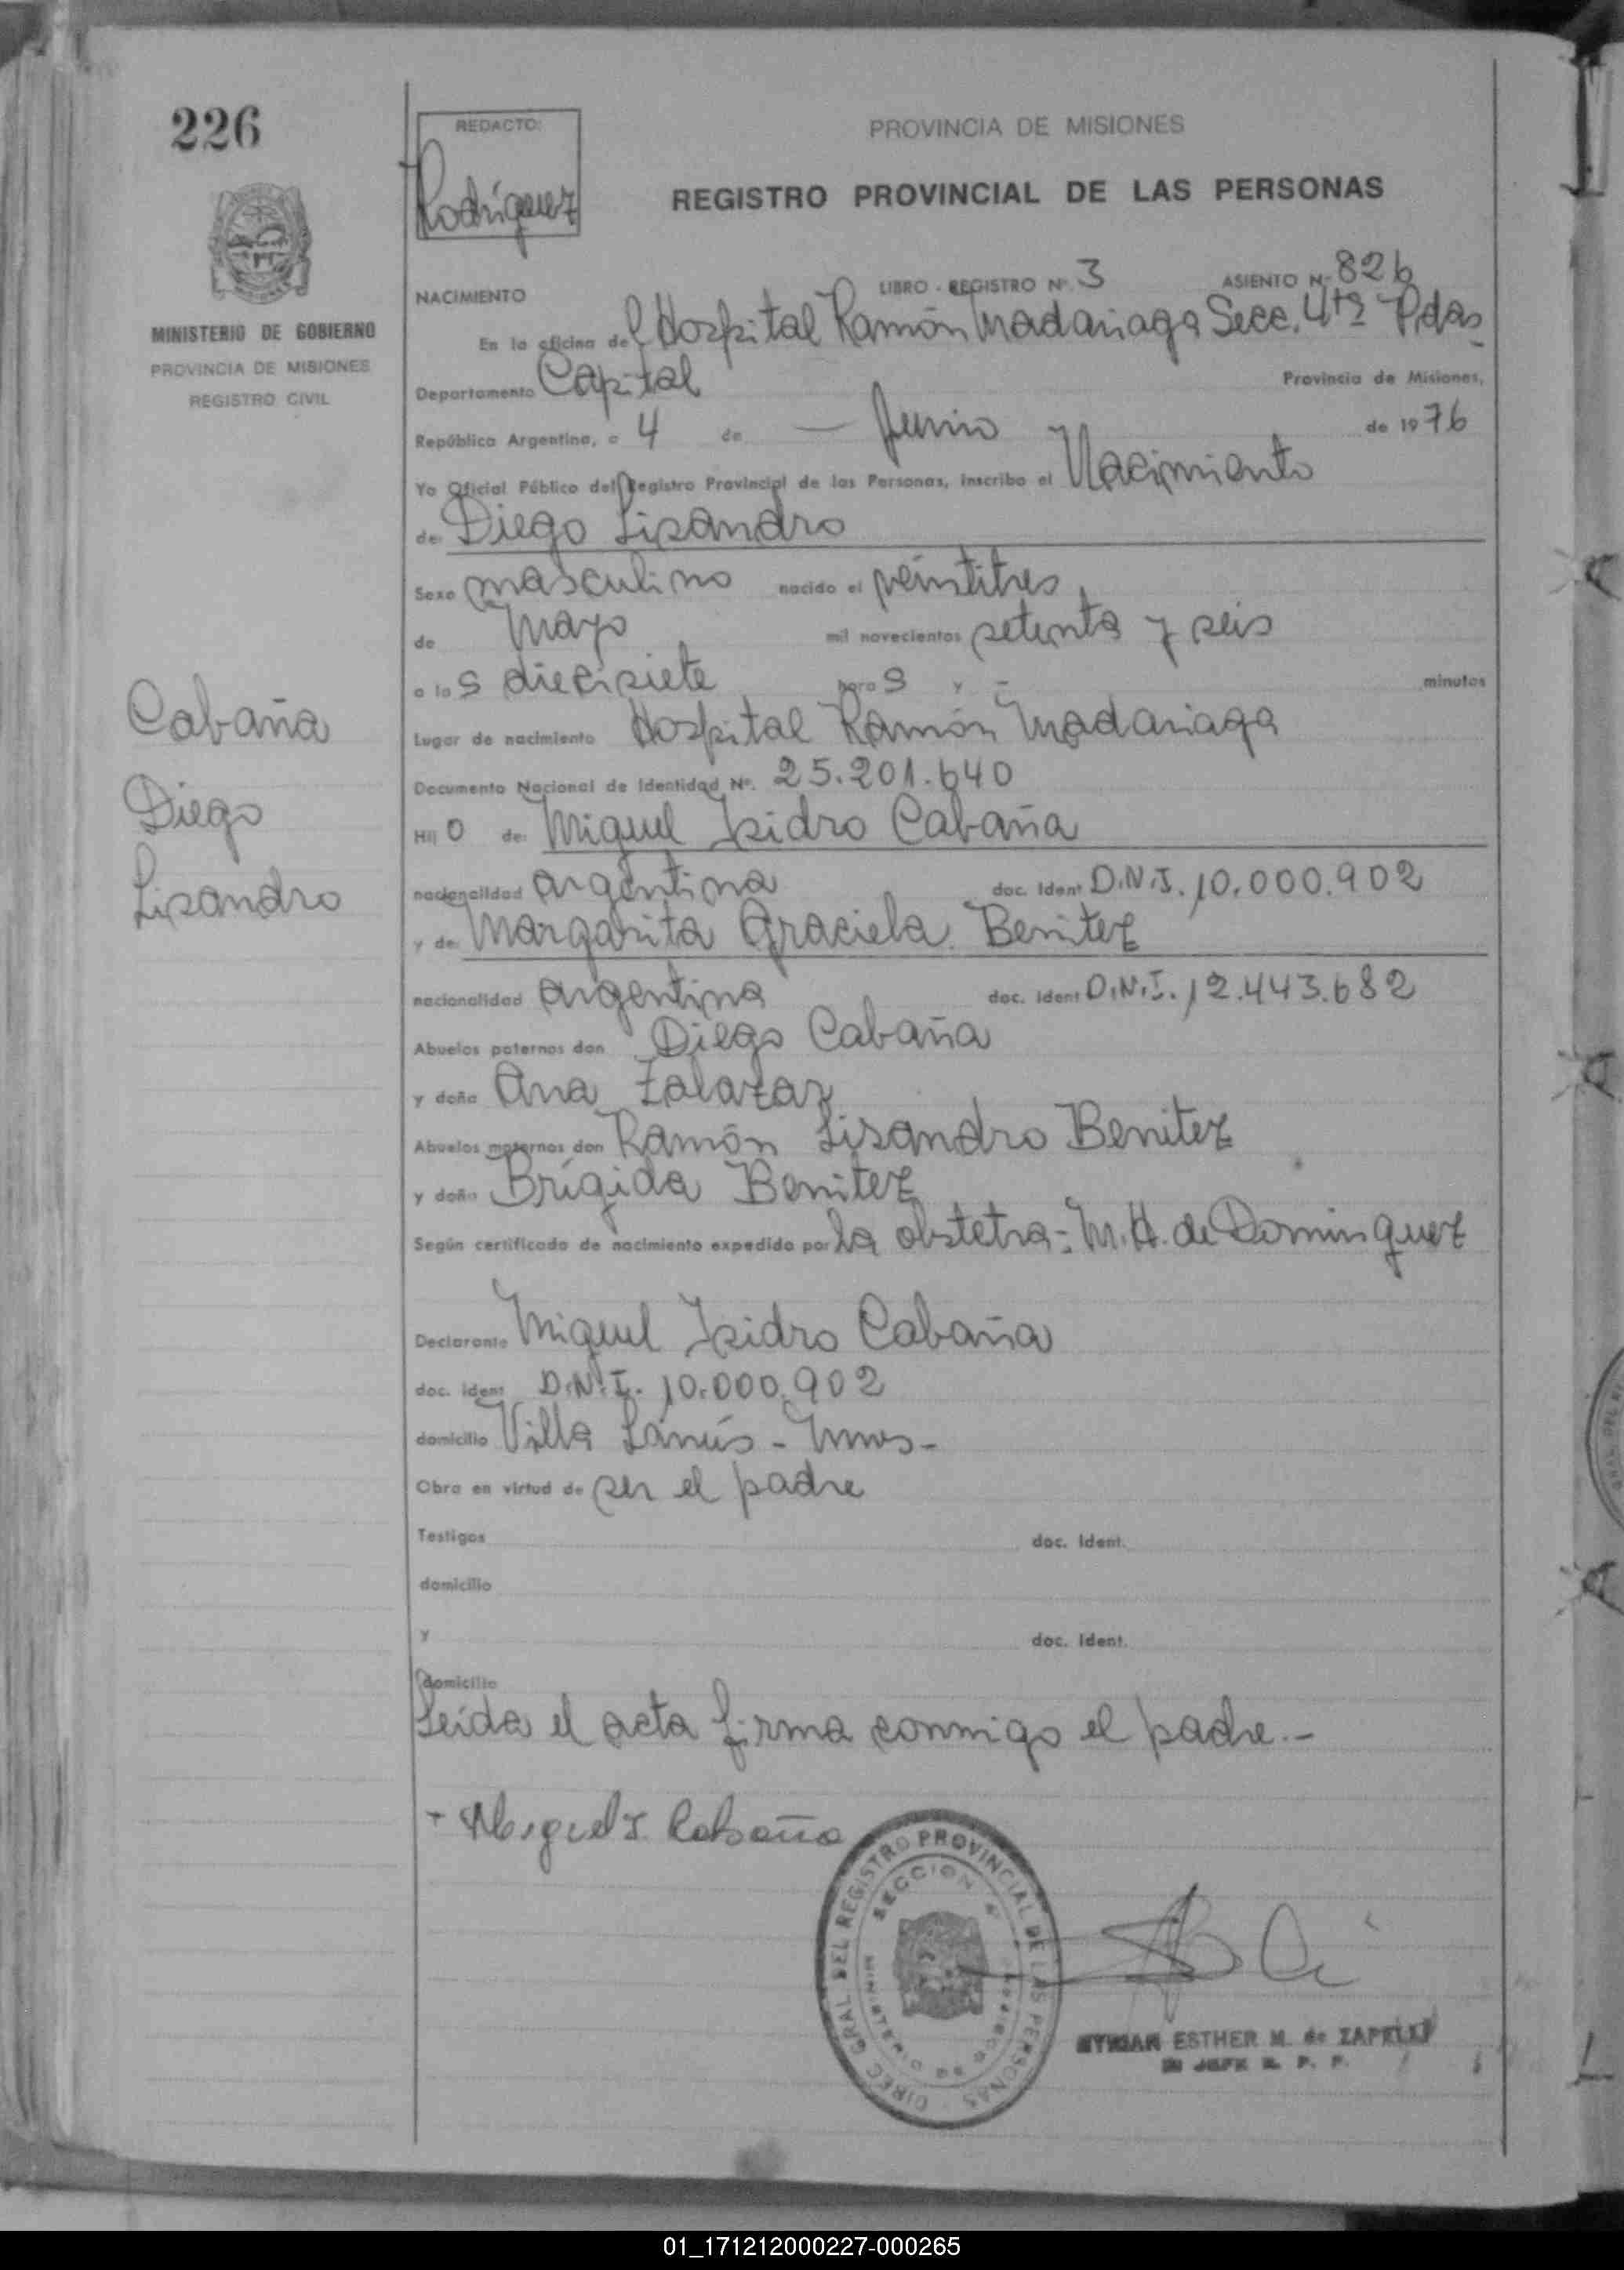 226
MINISTERIO DE GOBIERNO
PROVINCIA DE MISIONES
REGISTRO CIVIL
Cabaña
Diego
Lisandro
REDACTO:
Rodríguez
PROVINCIA DE MISIONES
REGISTRO PROVINCIAL DE LAS PERSONAS
NACIMIENTO LIBRO - REGISTRO Nº 3 ASIENTO Nº 826
En la oficina del Hospital Ramón Madariaga Secc. 4ta Pdas
Departamento Capital Provincia de Misiones,
República Argentina, a 4 de — Junio de 1976
Yo Oficial Público del Registro Provincial de las Personas, inscribo el Nacimiento
de Diego Lisandro
Sexo masculino nacido el veintitres
de Mayo mil novecientos setenta y seis
a las diecisiete horas y - minutos
Lugar de nacimiento Hospital Ramón Madariaga
Documento Nacional de Identidad Nº. 25.201.640
Hijo de Miguel Isidro Cabaña
nacionalidad argentina doc. Ident D.N.I. 10.000.902
y de Margarita Graciela Benitez
nacionalidad argentina doc. Ident D.N.I. 12.443.682
Abuelos paternos don Diego Cabaña
y doña Ana Zalazar
Abuelos maternos don Ramón Lisandro Benitez
y doña Brígida Benitez
Según certificado de nacimiento expedido por la obstetra: M.H. de Dominguez
Declarante Miguel Isidro Cabaña
doc. ident D.N.I. 10.000.902
domicilio Villa Lanús - Mnes-
Obra en virtud de ser el padre
Testigos doc. Ident.
domicilio
y doc. Ident.
domicilio
Leída el acta firma conmigo el padre.-
Miguel I. Cabaña
DIREC. GRAL. DEL REGISTRO PROVINCIAL DE LAS PERSONAS
SECCION 4ª
ESTHER M. de ZAPELLI
01_171212000227-000265